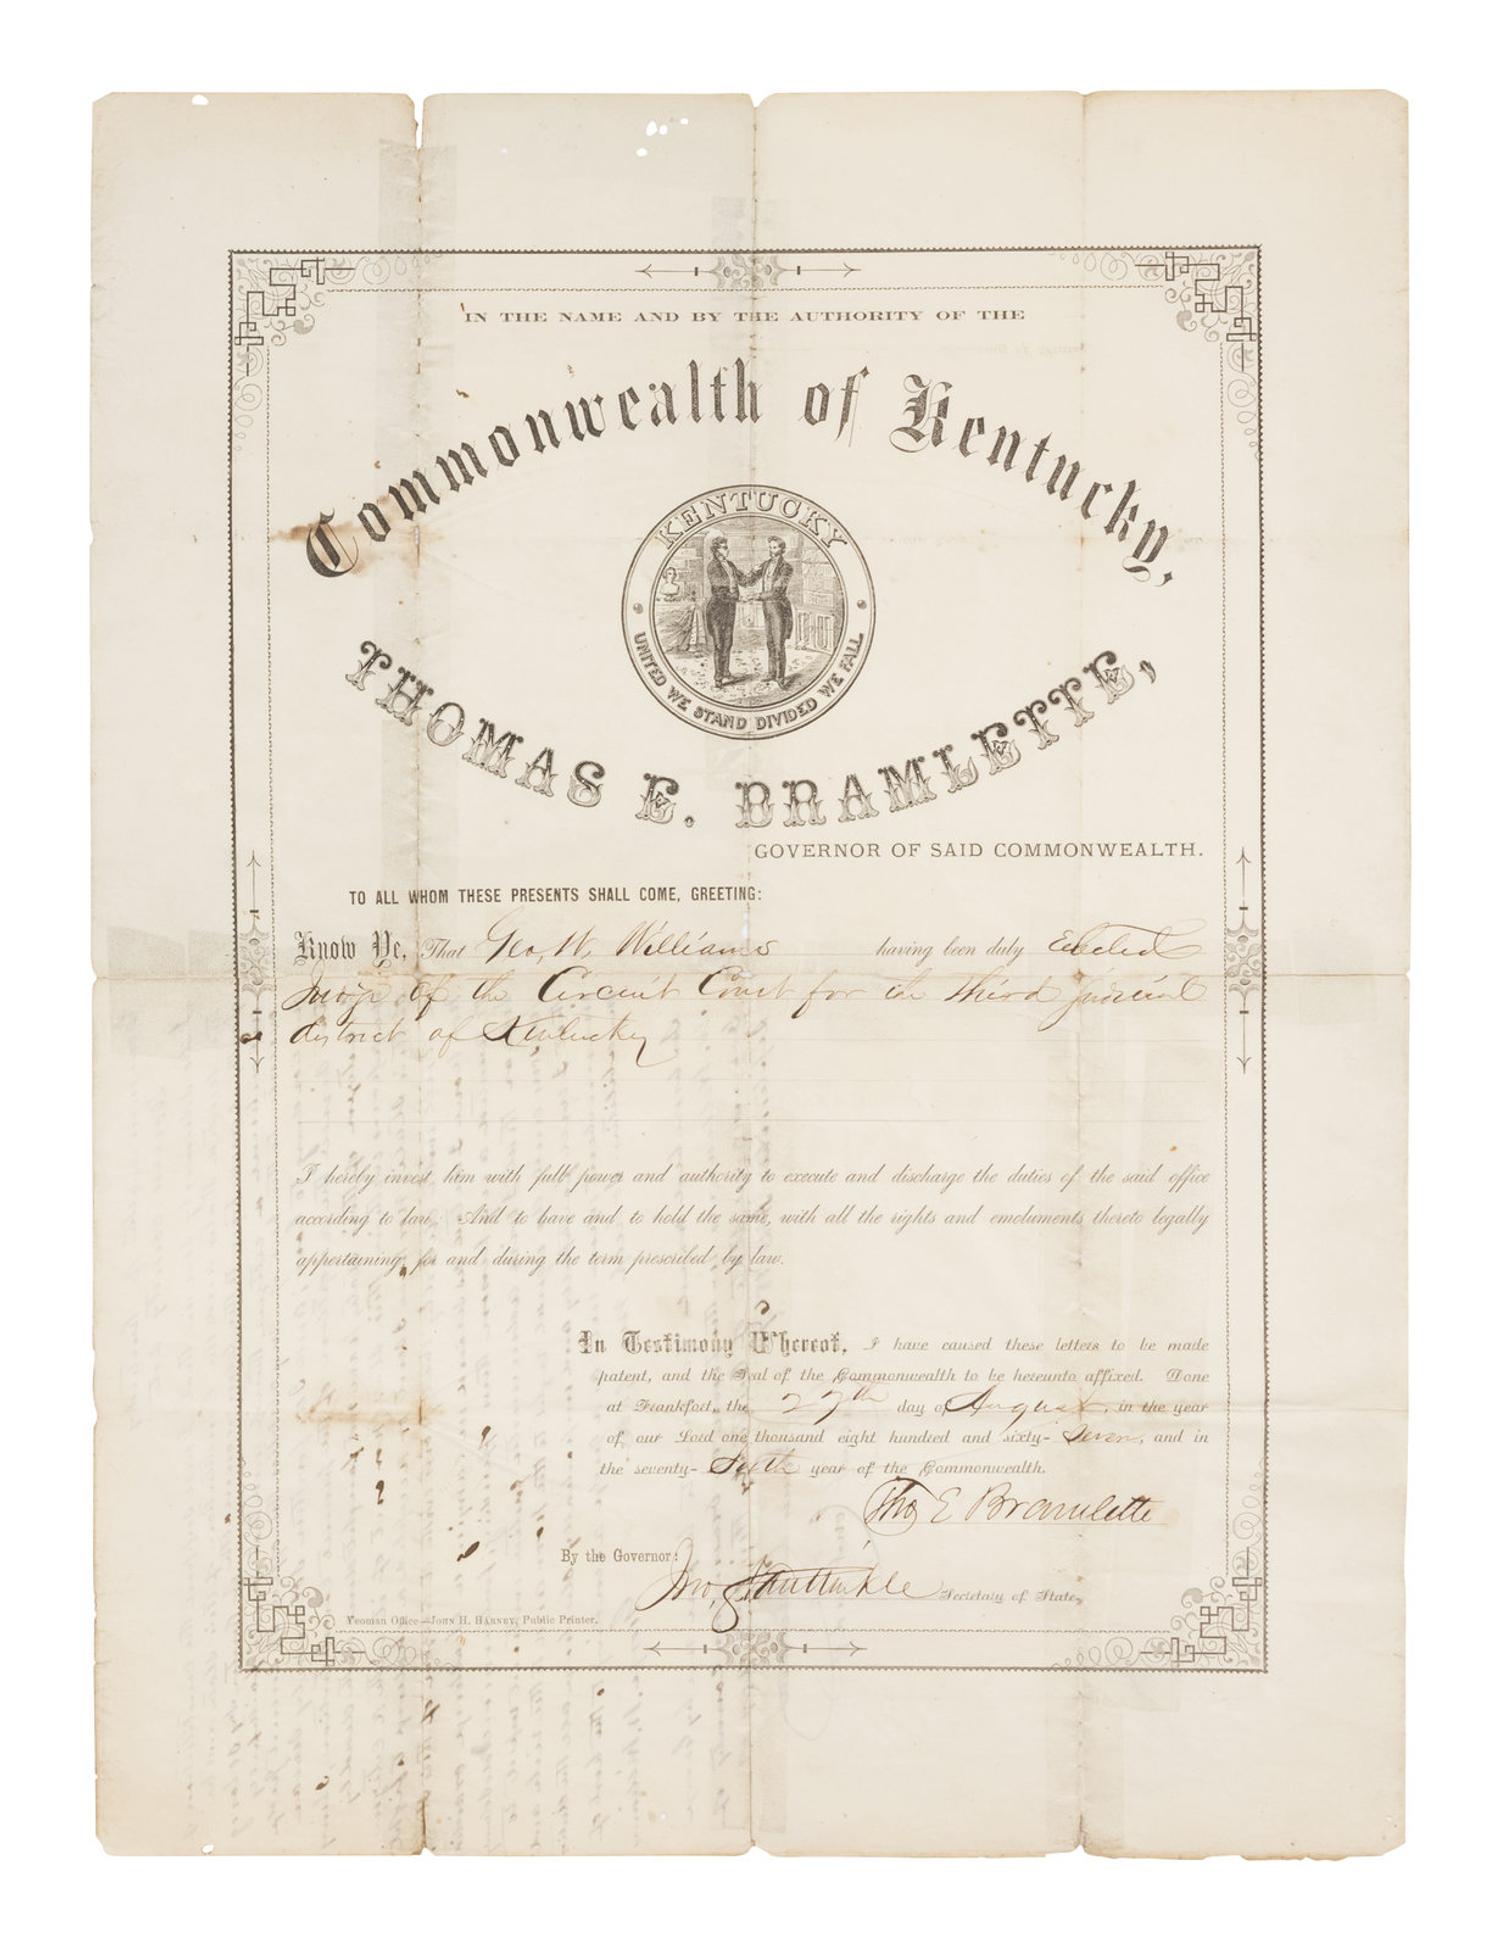 IN THE NAME AND BY THE AUTHORITY OF THE
Commonwealth of Kentucky,
KENTUCKY
UNITED WE STAND DIVIDED WE FALL
THOMAS E. BRAMLETTE,
GOVERNOR OF SAID COMMONWEALTH.
TO ALL WHOM THESE PRESENTS SHALL COME, GREETING:
Know Ye, That Geo, W, Williams having been duly Elected
Judge of the Circuit Court for the third judicial
district of Kentucky
I hereby invest him with full power and authority to execute and discharge the duties of the said office
according to law; And to have and to hold the same, with all the rights and emoluments thereto legally
appertaining, for and during the term prescribed by law.
In Testimony Whereof, I have caused these letters to be made
patent, and the Seal of the Commonwealth to be hereunto affixed. Done
at Frankfort, the 27th day of August, in the year
of our Lord one thousand eight hundred and sixty-Seven, and in
the seventy-Sixth year of the Commonwealth.
Tho E Bramlette
By the Governor:
Jno, S. Secretary of State,
Yeoman Office—JOHN H. HARNEY, Public Printer.